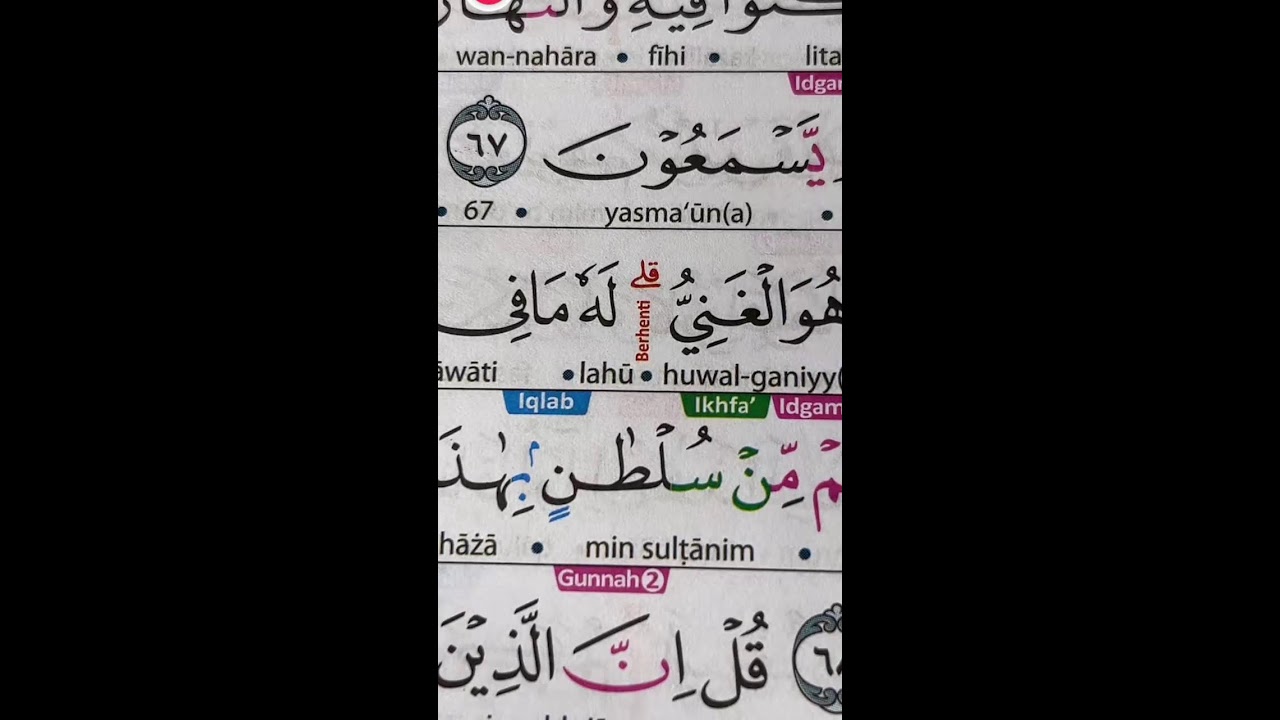 فِيْهِ وَالنَّهَارَ
wan-nahāra • fīhi • lita
Idgam
يَّسْمَعُوْنَ ٦٧
• 67 • yasma‘ūn(a) •
هُوَ الْغَنِيُّ قلى لَهٗ مَا فِى
Berhenti
āwāti • lahū • huwal-ganiyy(
Iqlab Ikhfa’ Idgam
مِّنْ سُلْطٰنٍۢ بِهٰذَا
hāżā • min sulṭānim •
Gunnah 2
٦٨ قُلْ اِنَّ الَّذِيْنَ